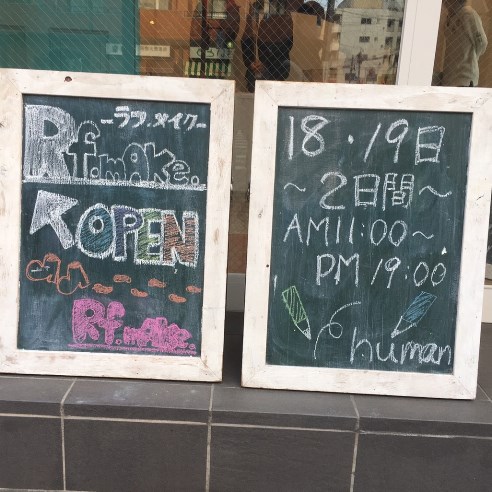 ーラフ.メイクー
Rf.make.
OPEN
Rf.make.
18.19日
～2日間～
AM11:00～
PM 19:00
human